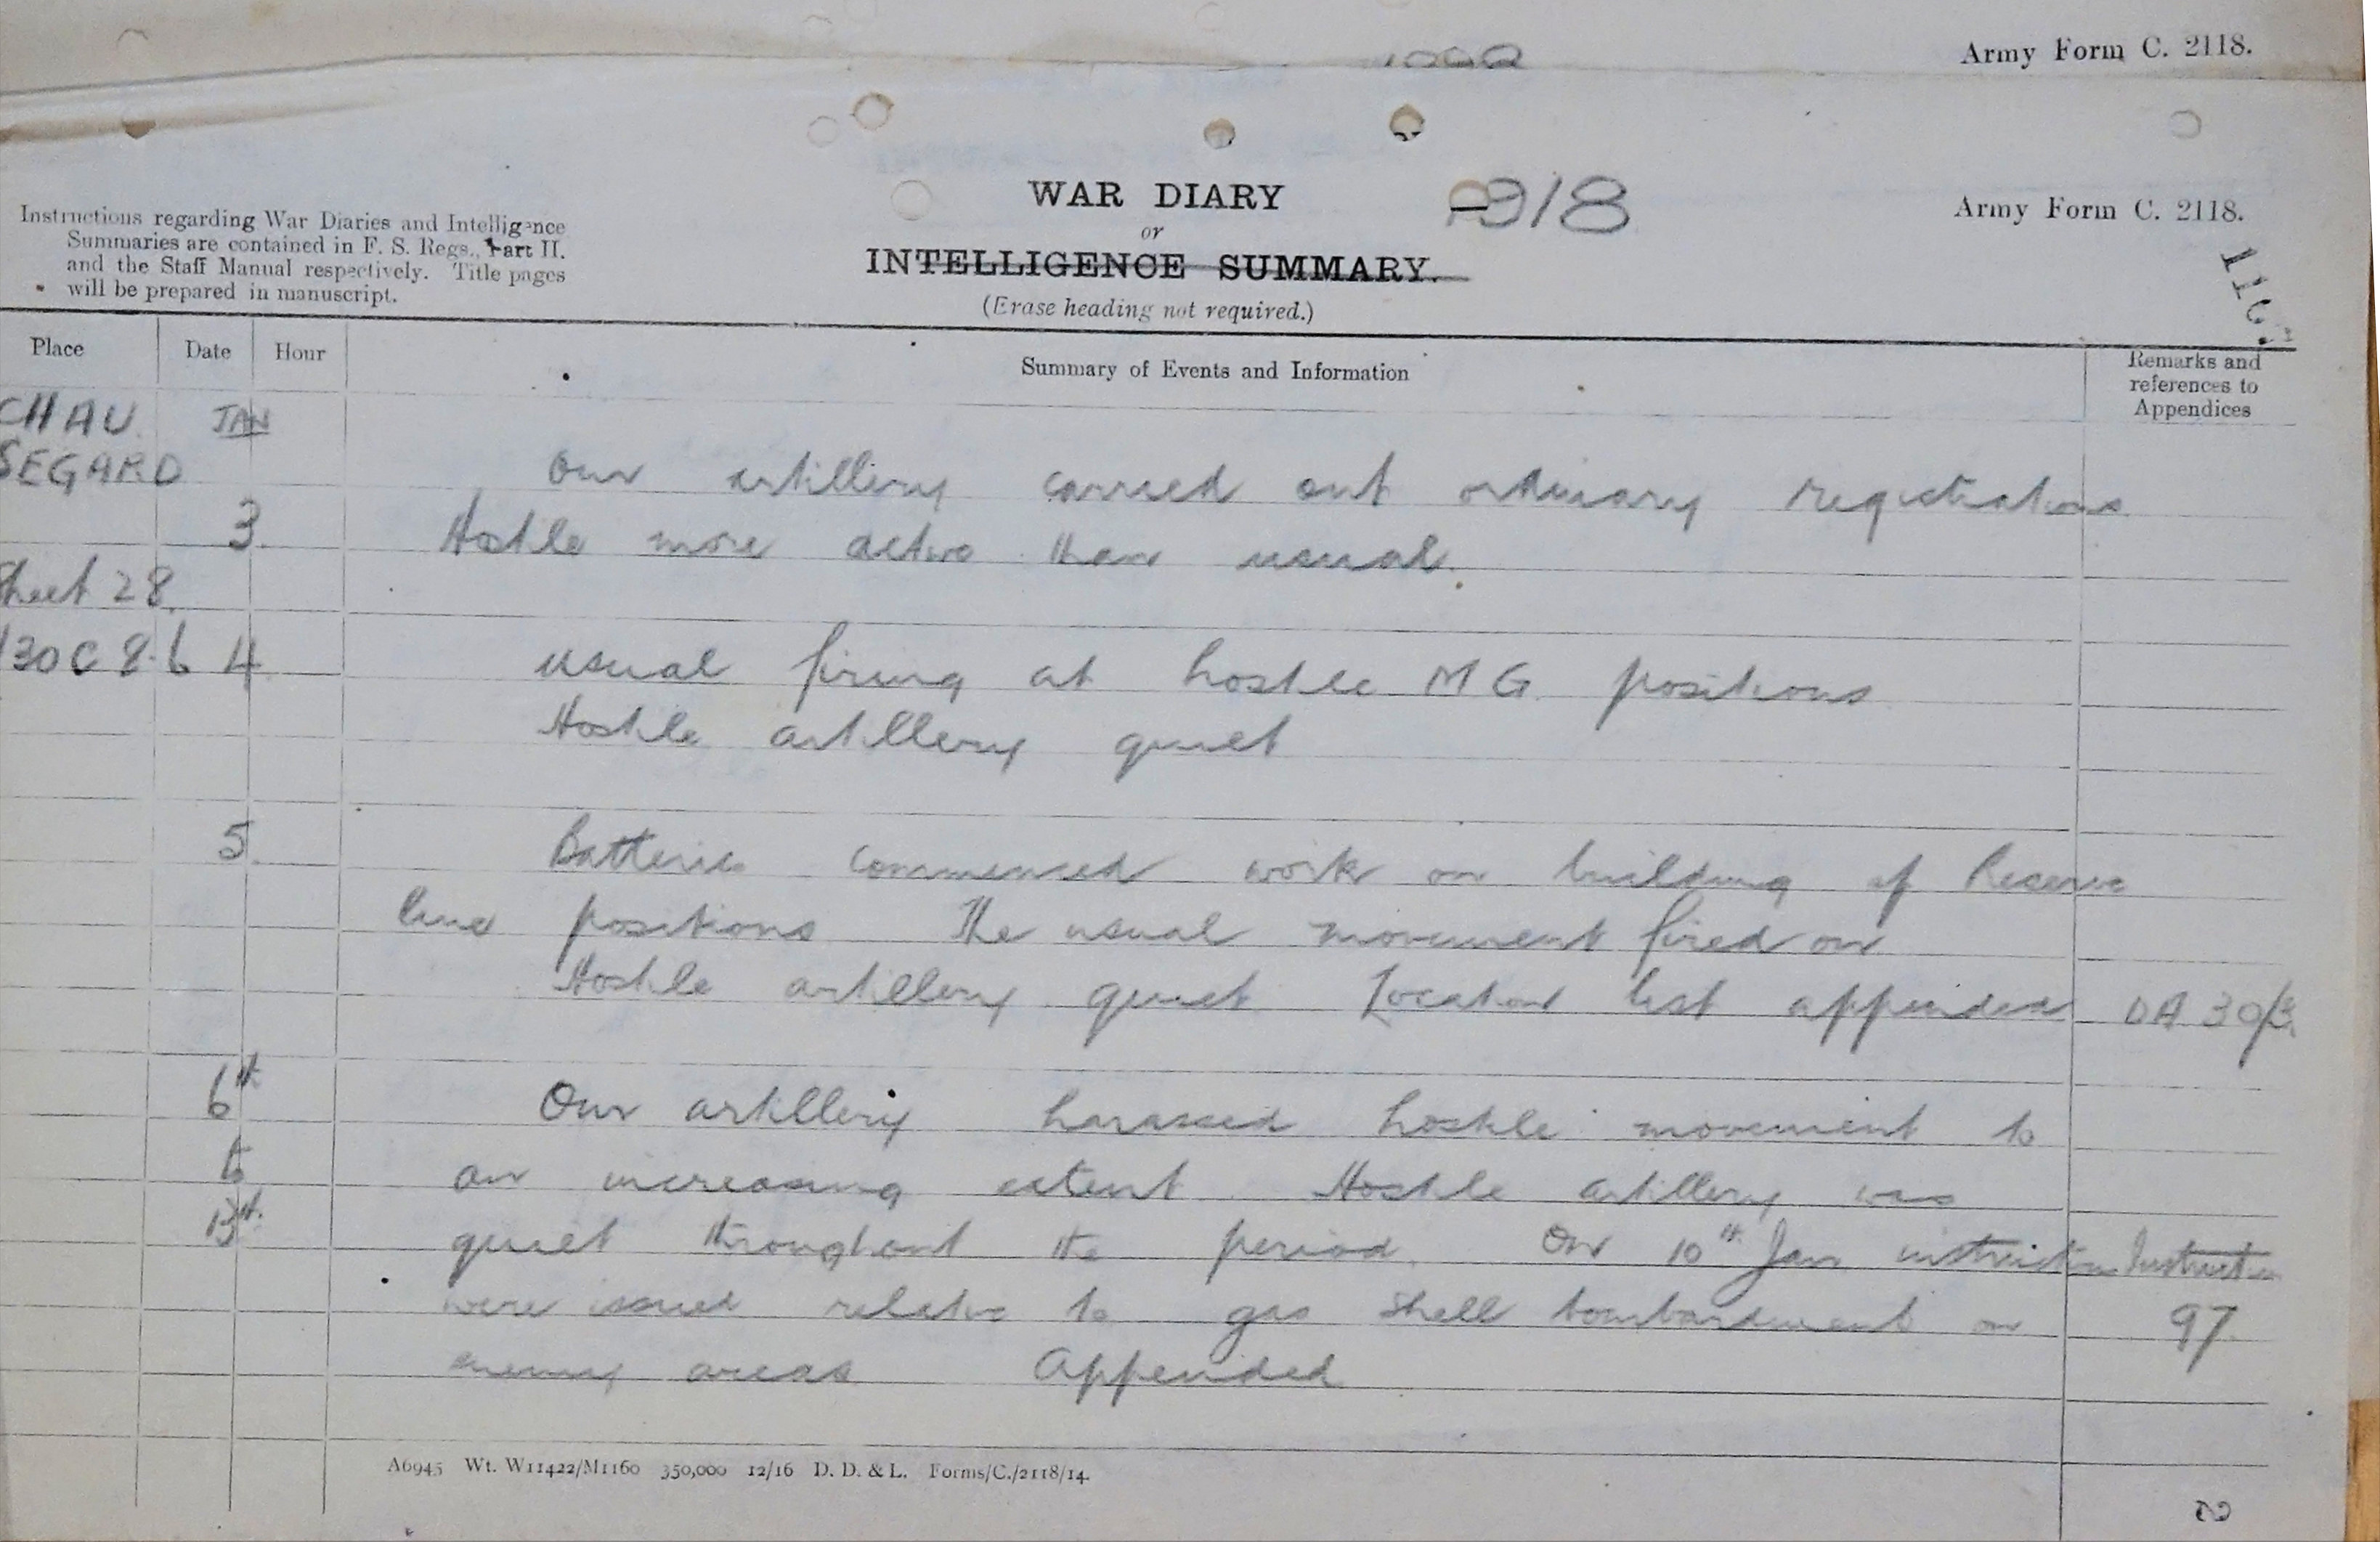 Army Form C. 2118.
WAR DIARY
918
Army Form C. 2118.
or
INTELLIGENCE SUMMARY.
(Erase heading not required.)
Instructions regarding War Diaries and Intelligence
Summaries are contained in F. S. Regs., Part II.
and the Staff Manual respectively. Title pages
will be prepared in manuscript.
Place Date Hour Summary of Events and Information Remarks and
references to
Appendices
CHAU JAN
SEGARD Our artillery carried out ordinary registrations
3. Hostile more active than usual.
Sheet 28.
30 C 8.6 4 usual firing at hostile M G positions
Hostile artillery quiet
5. Batteries commenced work on building of Reserve
line positions The usual movement fired on
Hostile artillery quiet Location list appended DA 30/3
6th Our artillery harassed hostile movement to
to an increasing extent Hostile artillery was
13th. quiet throughout the period. On 10th Jan instructions Instruction
were issued relative to gas shell bombardment on 97.
enemy areas Appended
A6945 Wt. W11422/M1160 350,000 12/16 D. D. & L. Forms/C./2118/14.
2